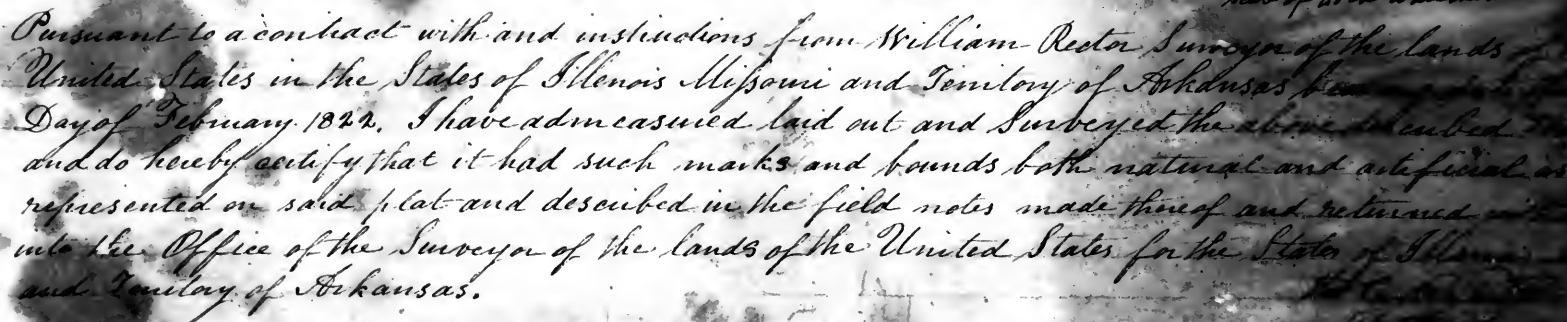 Pursuant to a contract with and instructions from William Rector Surveyor of the lands
United States in the States of Illenois Missouri and Territory of Arkansas
Day of February 1822. I have admeasured laid out and Surveyed the above
and do hereby certify that it had such marks and bounds both natural and artificial
represented on said plat and described in the field notes made thereof and returned
into the Office of the Surveyor of the lands of the United States for the States of
and Territory of Arkansas.